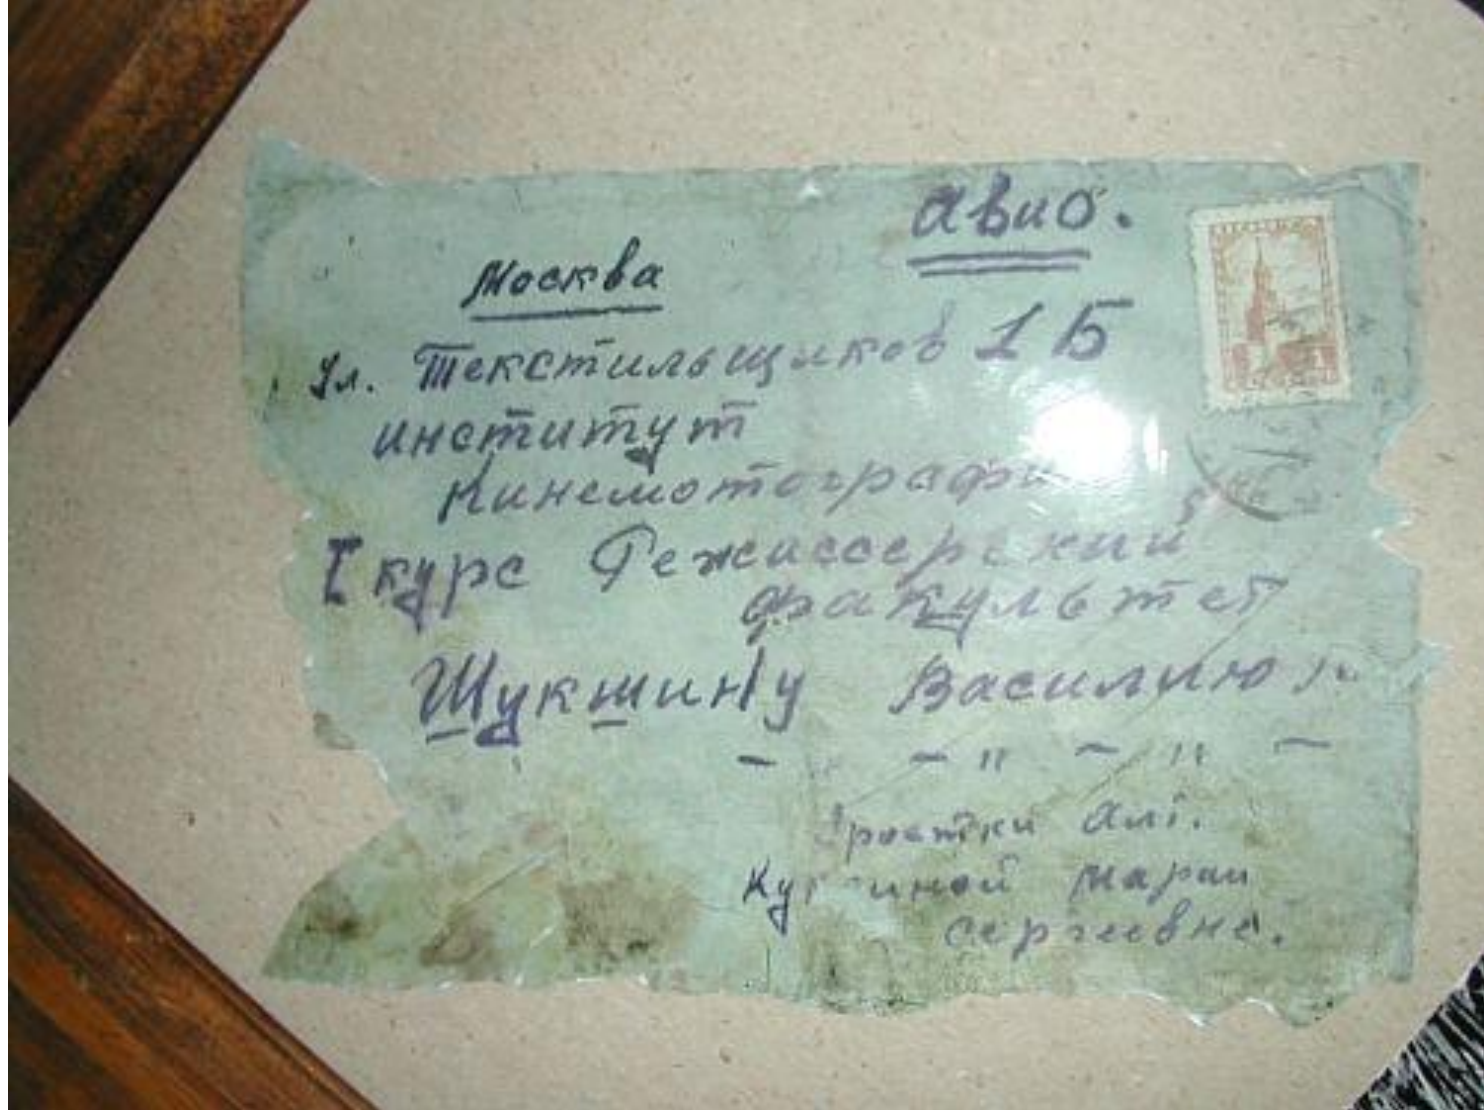 Авиб.
Москва
Ул. Текстильщиков 1 Б
институт
Кинемотографи
I курс Режиссерский
факультет
Шукшину Василию
— " — " — " —
Сростки Алт.
Куксиной Марии
сергеевне.